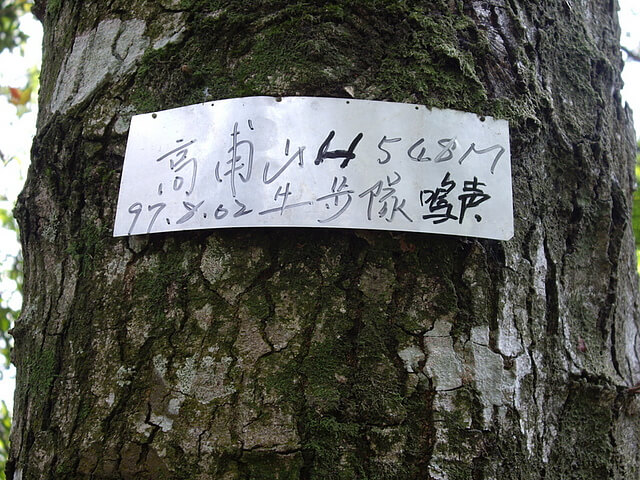 高甫山H548M
97.8.02牛步隊鳴声